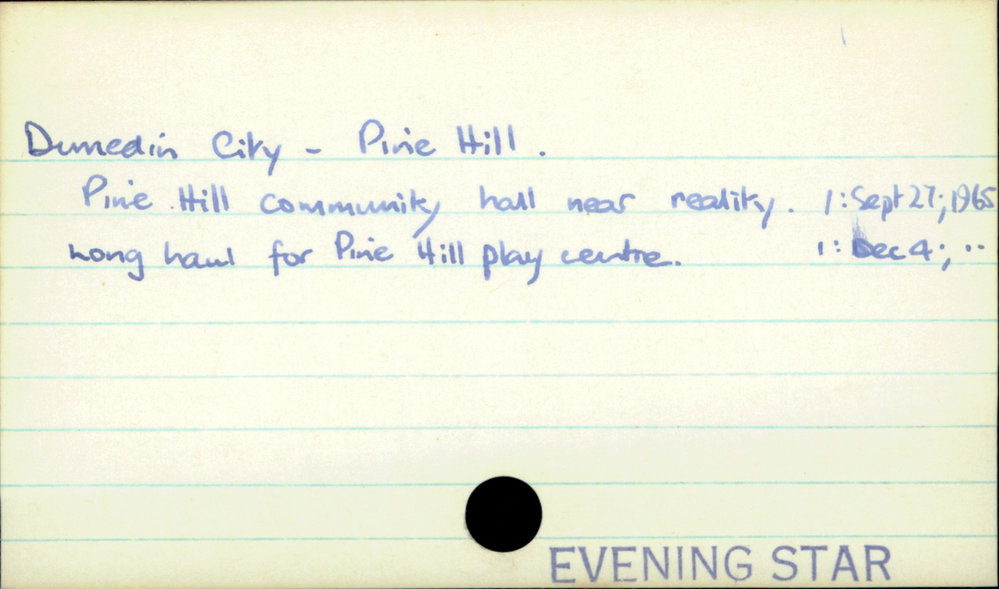 Dunedin City - Pine Hill.
Pine Hill community hall near reality. 1: Sept 27; 1965
Long haul for Pine Hill play centre. 1: Dec 4; ..
EVENING STAR